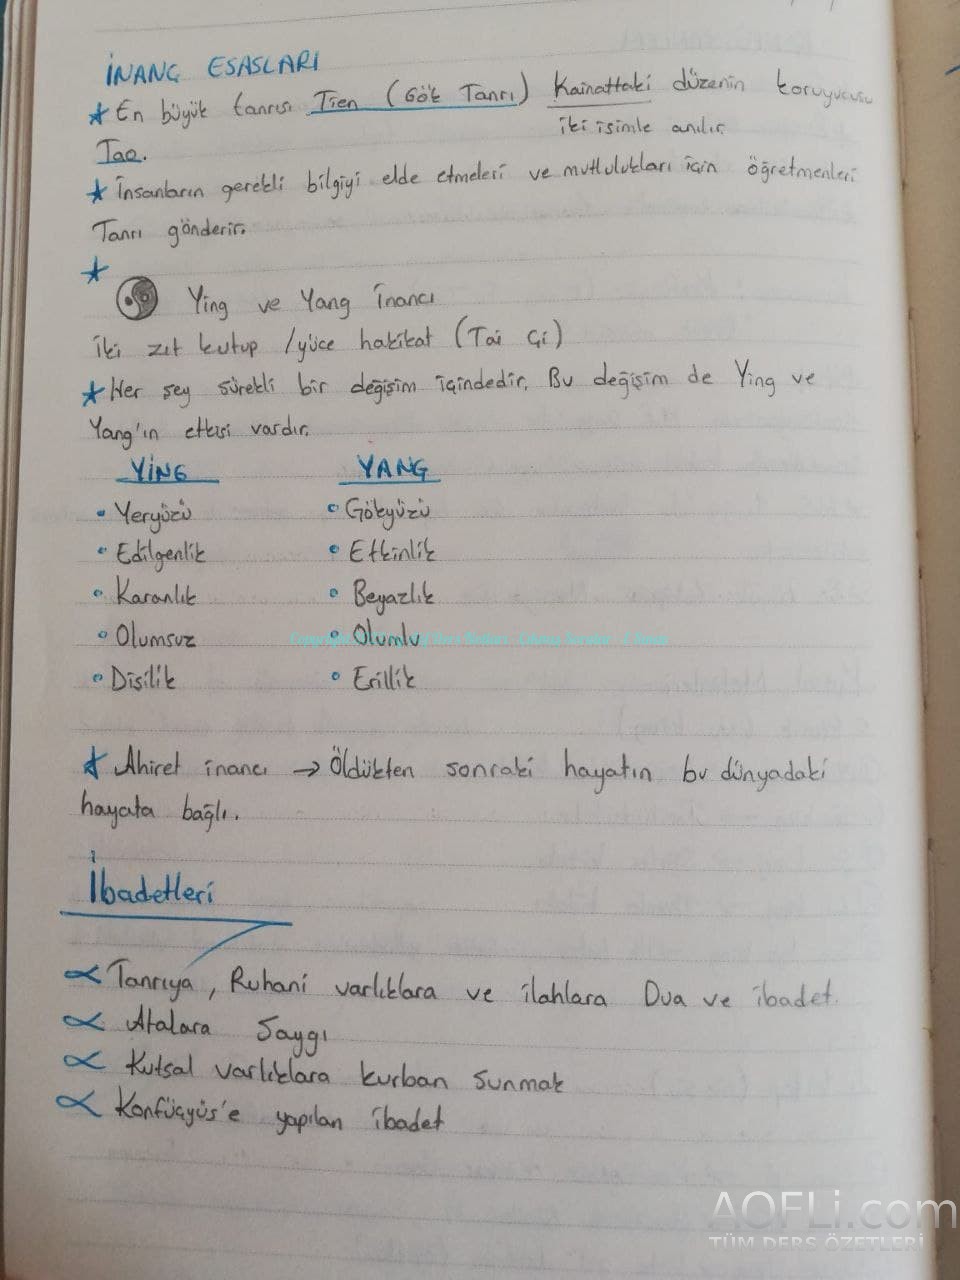 İNANÇ ESASLARI
★ En büyük tanrısı Tien (Gök Tanrı) Kainattaki düzenin koruyucusu
iki isimle anılır.
Tao.
★ İnsanların gerekli bilgiyi elde etmeleri ve mutlulukları için öğretmenleri
Tanrı gönderir.
★
Ying ve Yang İnancı
İki zıt kutup /yüce hakikat (Tai Çi)
★ Her şey sürekli bir değişim içindedir. Bu değişim de Ying ve
Yang'ın etkisi vardır.
YİNG YANG
• Yeryüzü • Gökyüzü
• Edilgenlik • Etkinlik
• Karanlık • Beyazlık
• Olumsuz • Olumlu
• Dişilik • Erillik
★ Ahiret inancı → Öldükten sonraki hayatın bu dünyadaki
hayata bağlı.
İbadetleri
∝ Tanrıya, Ruhani varlıklara ve ilahlara Dua ve ibadet.
∝ Atalara Saygı
∝ Kutsal varlıklara kurban sunmak
∝ Konfüçyüs'e yapılan ibadet
AOFLi.com
TÜM DERS ÖZETLERİ